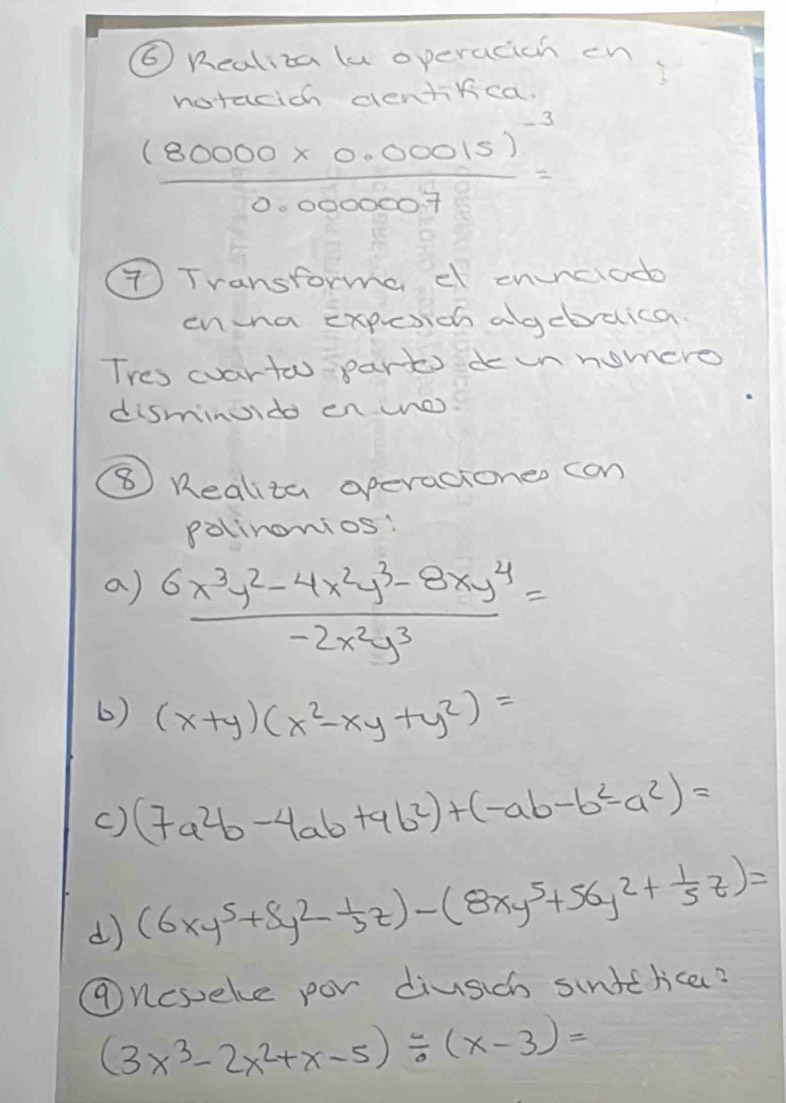 6 Realiza la operación en
notación cientifica.
(80000 x 0.00015)^-3 / 0.0000007 =
7 Transforma el enunciado
en una expresión algebraica.
Tres cuartas partes de un número
disminuido en uno.
8 Realiza operaciones con
polinomios:
a) 6x³y² - 4x²y³ - 8xy⁴ / -2x²y³ =
b) (x+y)(x²-xy+y²) =
c) (7a²b - 4ab + 9b²) + (-ab - b² - a²) =
d) (6xy⁵ + 8y² - ⅓z) - (8xy⁵ + 56y² + ⅕z) =
9 Resuelve por división sintética:
(3x³ - 2x² + x - 5) ÷ (x - 3) =